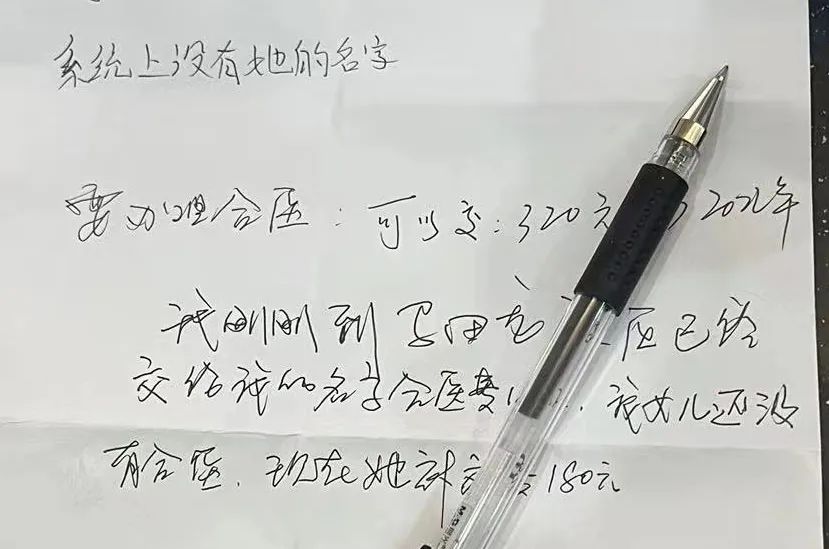 系统上没有她的名字
要办理合医：可以交：320元 2022年
我刚刚到 医已经
交给我的名字合医费 我女儿还没
有合医．现在她 180元
M&G